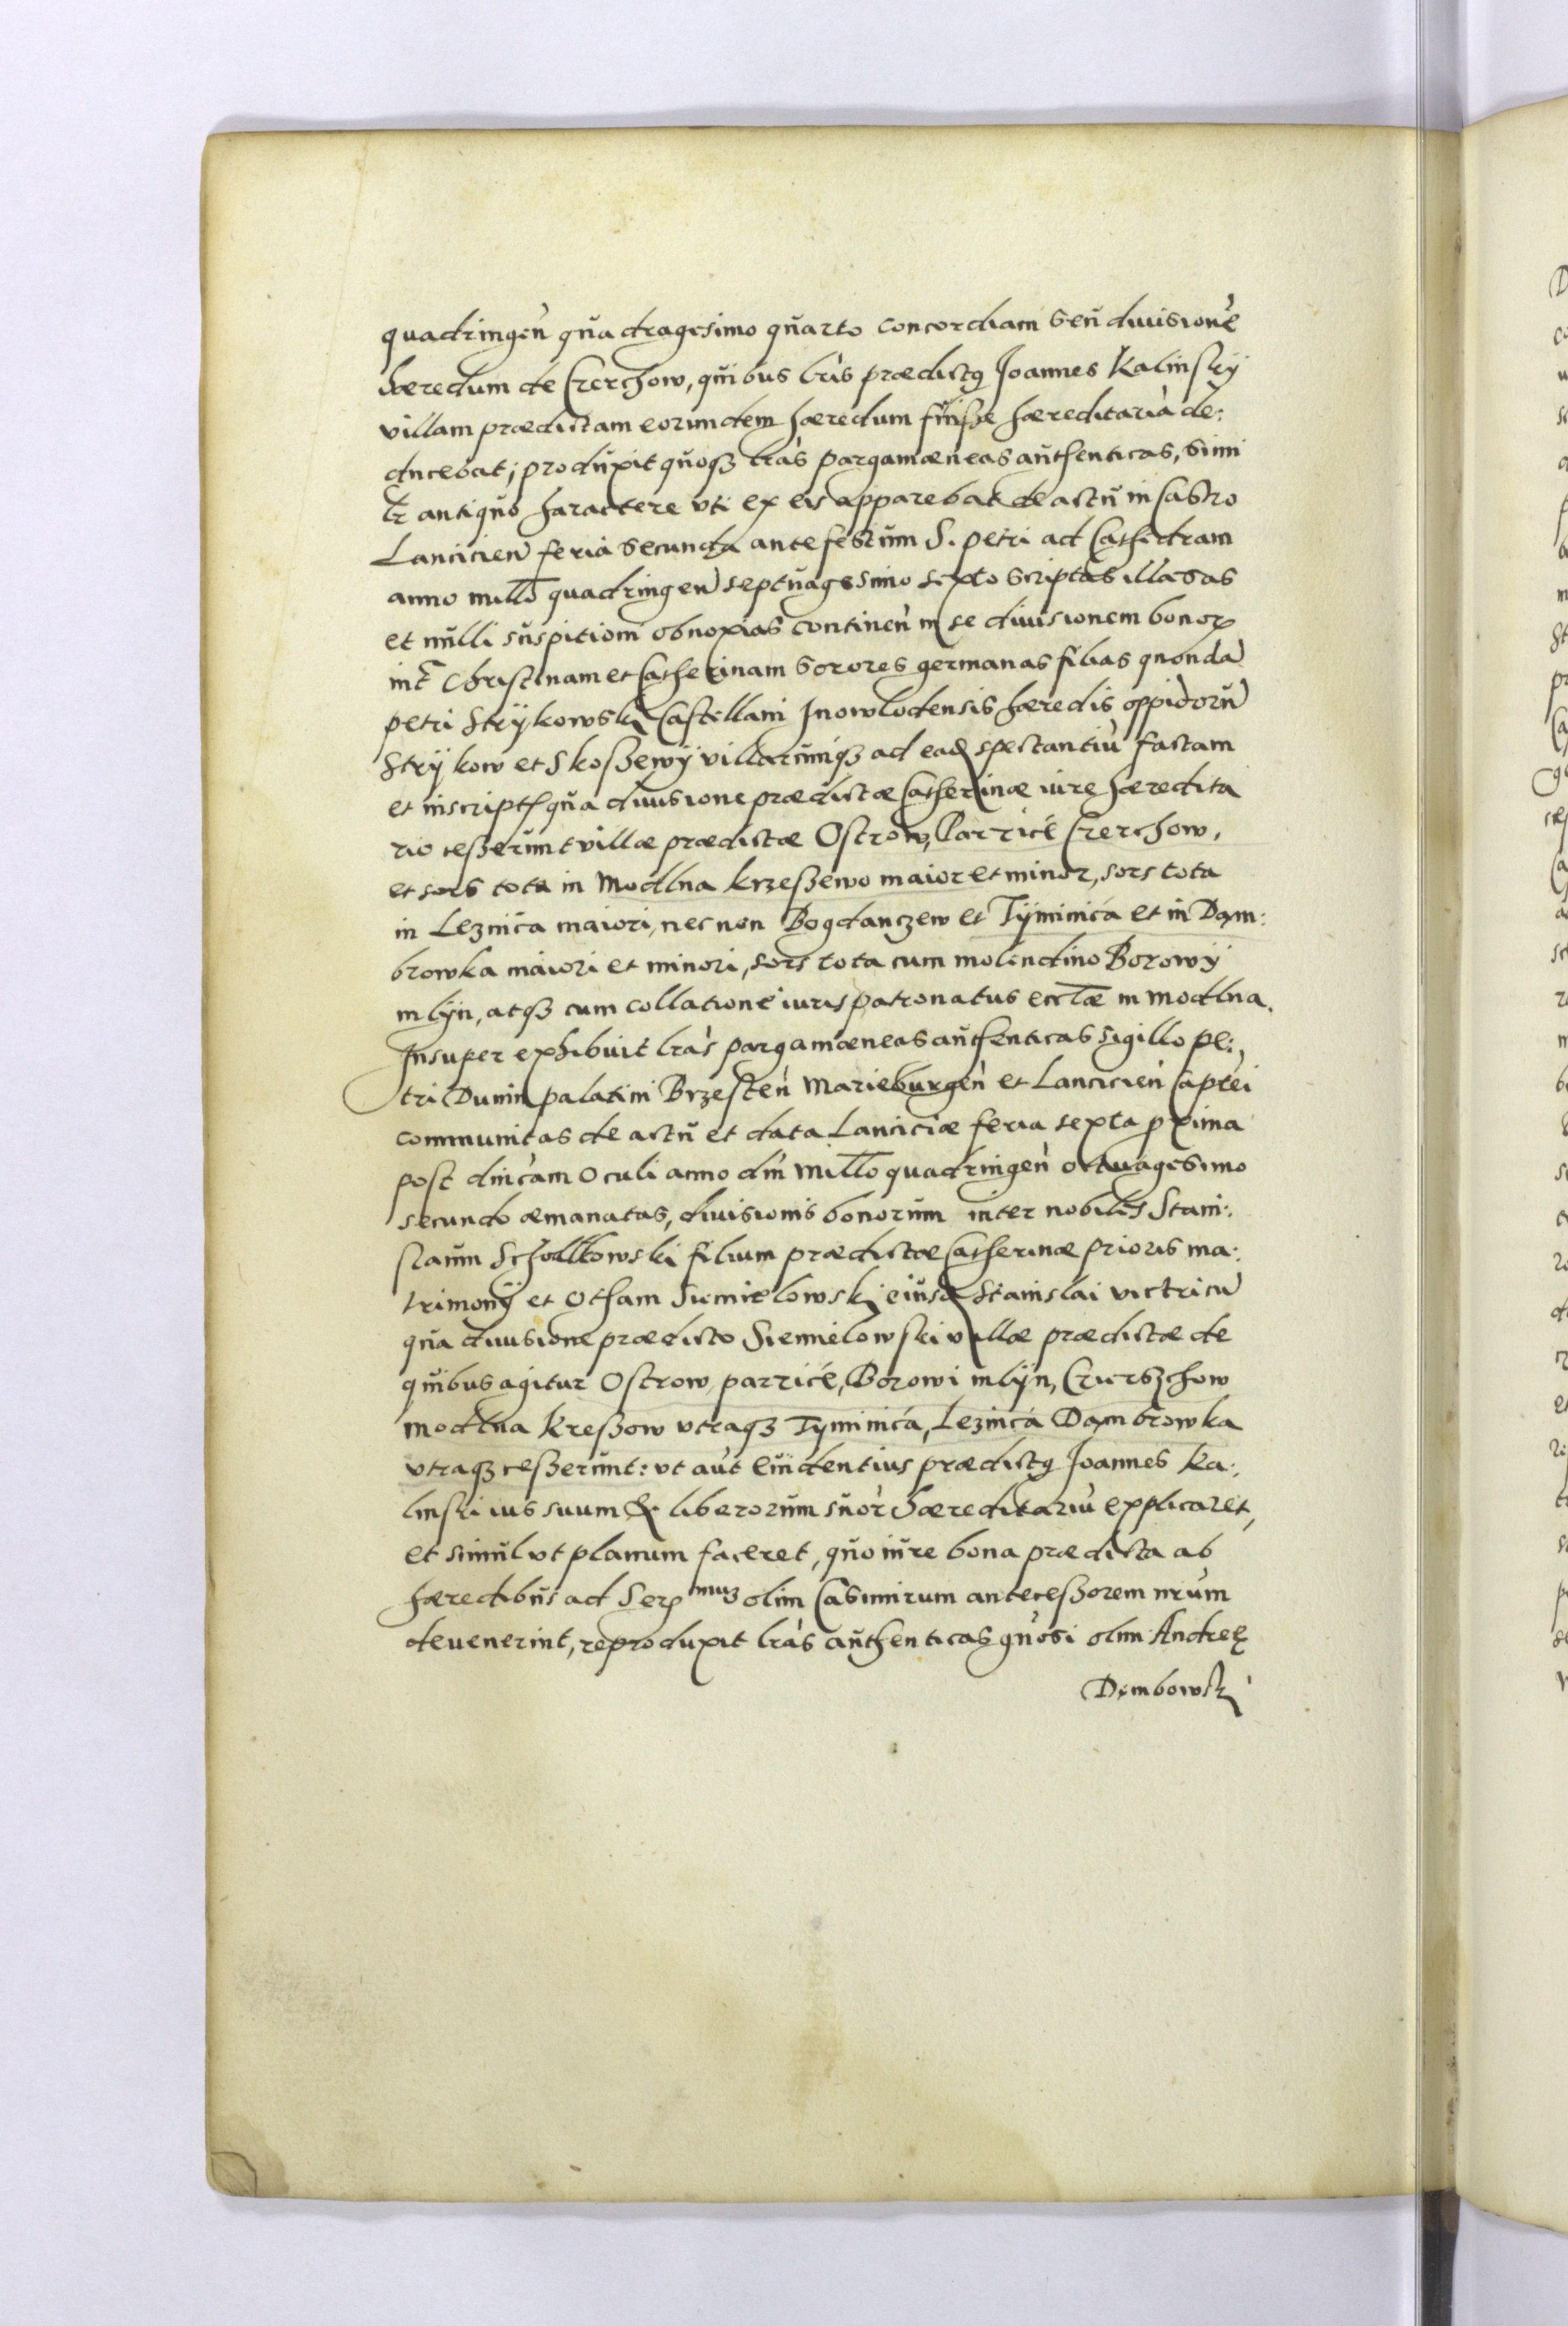 quadringeǹ quadragesimo quarto concordiam seu diuisionē
hæredum de Czerchow, quibus lr̃is prædictꝯ Joannes Kalinskÿ
villam prædictam eorundem hæredum fuisse hæreditariā de:
ducebat; produxit quoqꝫ lr̃as pargamæneas authenticas, simi
lr̃ antiquo haractere vti ex eis apparebat de actu in Castro
Lancicieñ feria secunda ante festum S. petri ad Cathedram
anno millō quadringeñ septuagesimo sexto scriptas illæsas
et nulli suspitioni obnoxias contineǹ in se diuisionem bonoꝝ
int̃ Christinam et Catherinam sorores germanas filias quondā
petri Strÿkowski Castellani Jnowlodensis hæredis oppidorū
Strÿkow et Skoßewÿ villarumqꝫ ad eaꝫ spectantiū factam
et inscriptꝭ qua diuisione prædictæ Catherinæ iure hæredita
rio ceßerunt villæ prædictæ Ostrow, Parzicé Czerchow,
et sors tota in Modlna krzeßewo maior et minor, sors tota
in Leznica maiori, nec non Bogdanczew et Tÿminica et in Dąm:
browka maiori et minori, sors tota cum molendino Borowÿ
mlÿn, atqꝫ cum collatione iuris patronatus eccl̃æ in modlna.
Insuper exhibuit lr̃as pargamæneas authenticas sigillo pe:
tri Dunin palatini Brzesteǹ Marieburgeǹ et Lancicieǹ Captei
communitas de actu et data Lanciciæ feria sexta ꝓxima
post dnicam Oculi anno dni Millō quadringeǹ octuagesimo
secundo æmanatas, diuisionis bonorum inter nobiles Stani:
slaum Schollkowski filium prædictæ Catherinæ prioris ma:
trimonÿ et Otham Siemielowski eiusꝫ Stanislai victricū
qua diuisione prædicto Siemielowski villæ prædictæ de
quibus agitur Ostrow parzicé, Borowi mlÿn, Czierszchow
modlna kreßow vtraqꝫ Tyminica, Leznica Dambrowka
vtraqꝫ ceßerunt: vt aut̃ euidentius prædictꝯ Joannes Ka:
linski ius suum & liberorum suor̃ hæreditariū explicaret,
et simul vt planum faceret, quo iure bona prædicta ab
hæredibus ad Serꝫ muꝫ olim Casimirum anteceßorem nrūm
deuenerint, reproduxit lr̃as authenticas gñosi olim Andreę
Dembowski